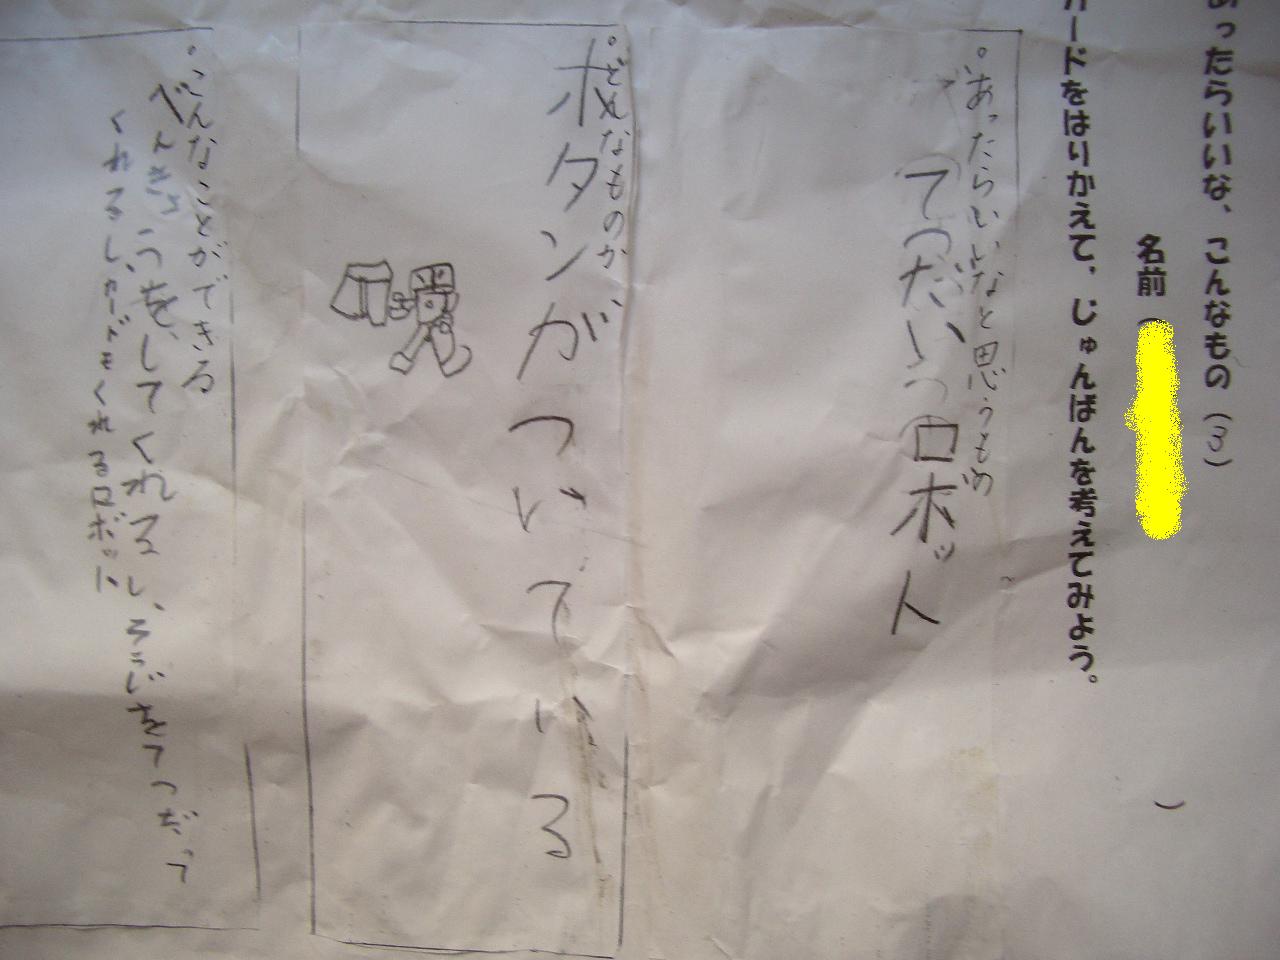 あったらいいな、こんなもの（3）
名前（　）
カードをはりかえて、じゅんばんを考えてみよう。
。あったらいいなと思うもの
てつだいロボット
。どんなものか、
ボタンがついている
。こんなことができる
べんきょうをしてくれるし、そうじをてつだって
くれるし、カードをくれるロボット